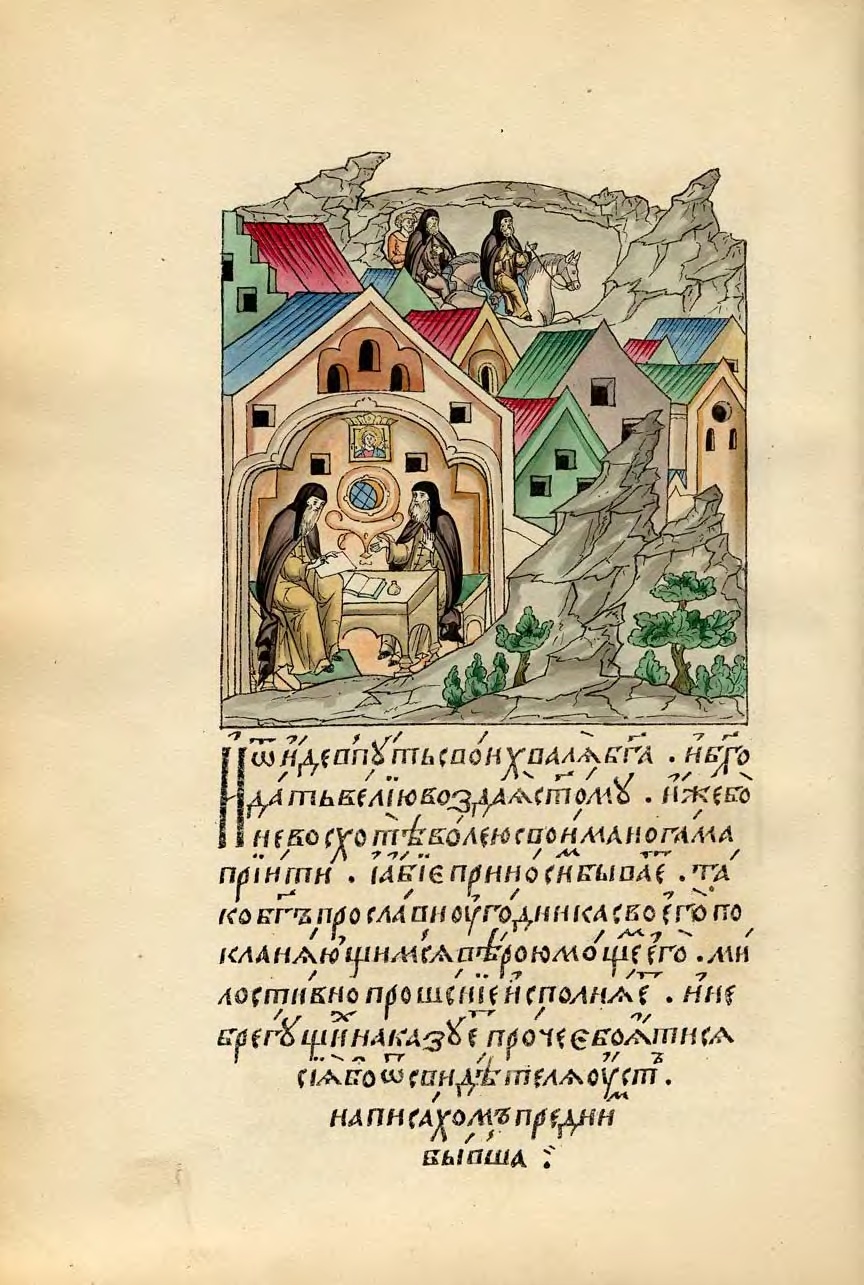 И ѿиде в пꙋть свои хвалѧ бг҃а . и бл҃го
дать велїю воздаѧ ст҃омꙋ . иже бо
не восхотѣ волею своима ногама
прїити . їабїе приноси́ бывае҇ . та
ко бг҃ъ прослави оугодника своего по
кланѧющимсѧ вѣрою моще҇ его . ми
лостивно прошенїе исполнѧе҇ . и не
брегꙋщи҇ наказꙋе҇ прочее боѧтисѧ
сїѧ бо ѿ свидѣтелѧ оуст҇ .
написахомъ пред ни҇
бывша :